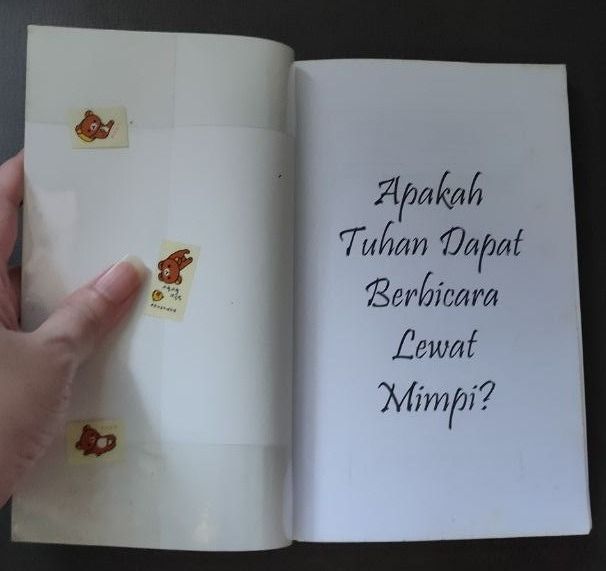 Apakah
Tuhan Dapat
Berbicara
Lewat
Mimpi?